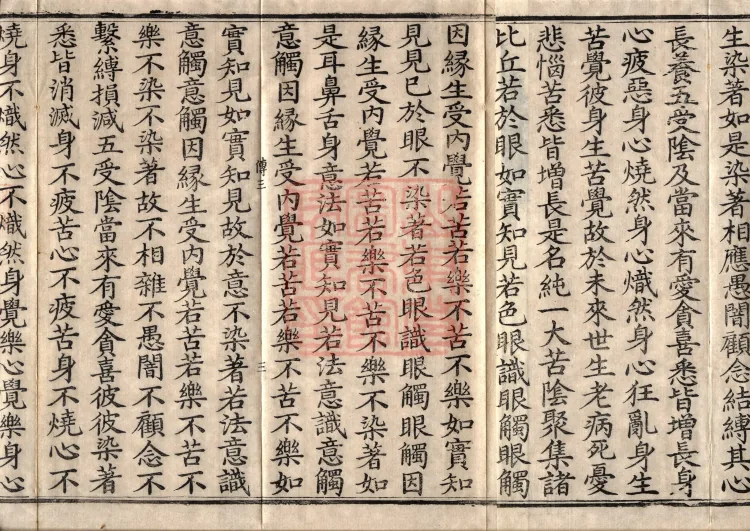 生染著如是染著相應愚闇顧念結縛其心
長養五受陰及當來有愛貪喜悉皆增長身
心疲惡身心燒然身心熾然身心狂亂身生
苦覺彼身生苦覺故於未來世生老病死憂
悲惱苦悉皆增長是名純一大苦陰聚集諸
比丘若於眼如實知見若色眼識眼觸眼觸
因緣生受內覺若苦若樂不苦不樂如實知
見見已於眼不染著若色眼識眼觸眼觸因
緣生受內覺若苦若樂不苦不樂不染著如
是耳鼻舌身意法如實知見若法意識意觸
意觸因緣生受內覺若苦若樂不苦不樂如
傅三 三
實知見如實知見故於意不染著若法意識
意觸意觸因緣生受內覺若苦若樂不苦不
樂不染不染著故不相雜不愚闇不顧念不
繫縛損減五受陰當來有愛貪喜彼彼染著
悉皆消滅身不疲苦心不疲苦身不燒心不
燒身不熾然心不熾然身覺樂心覺樂身心